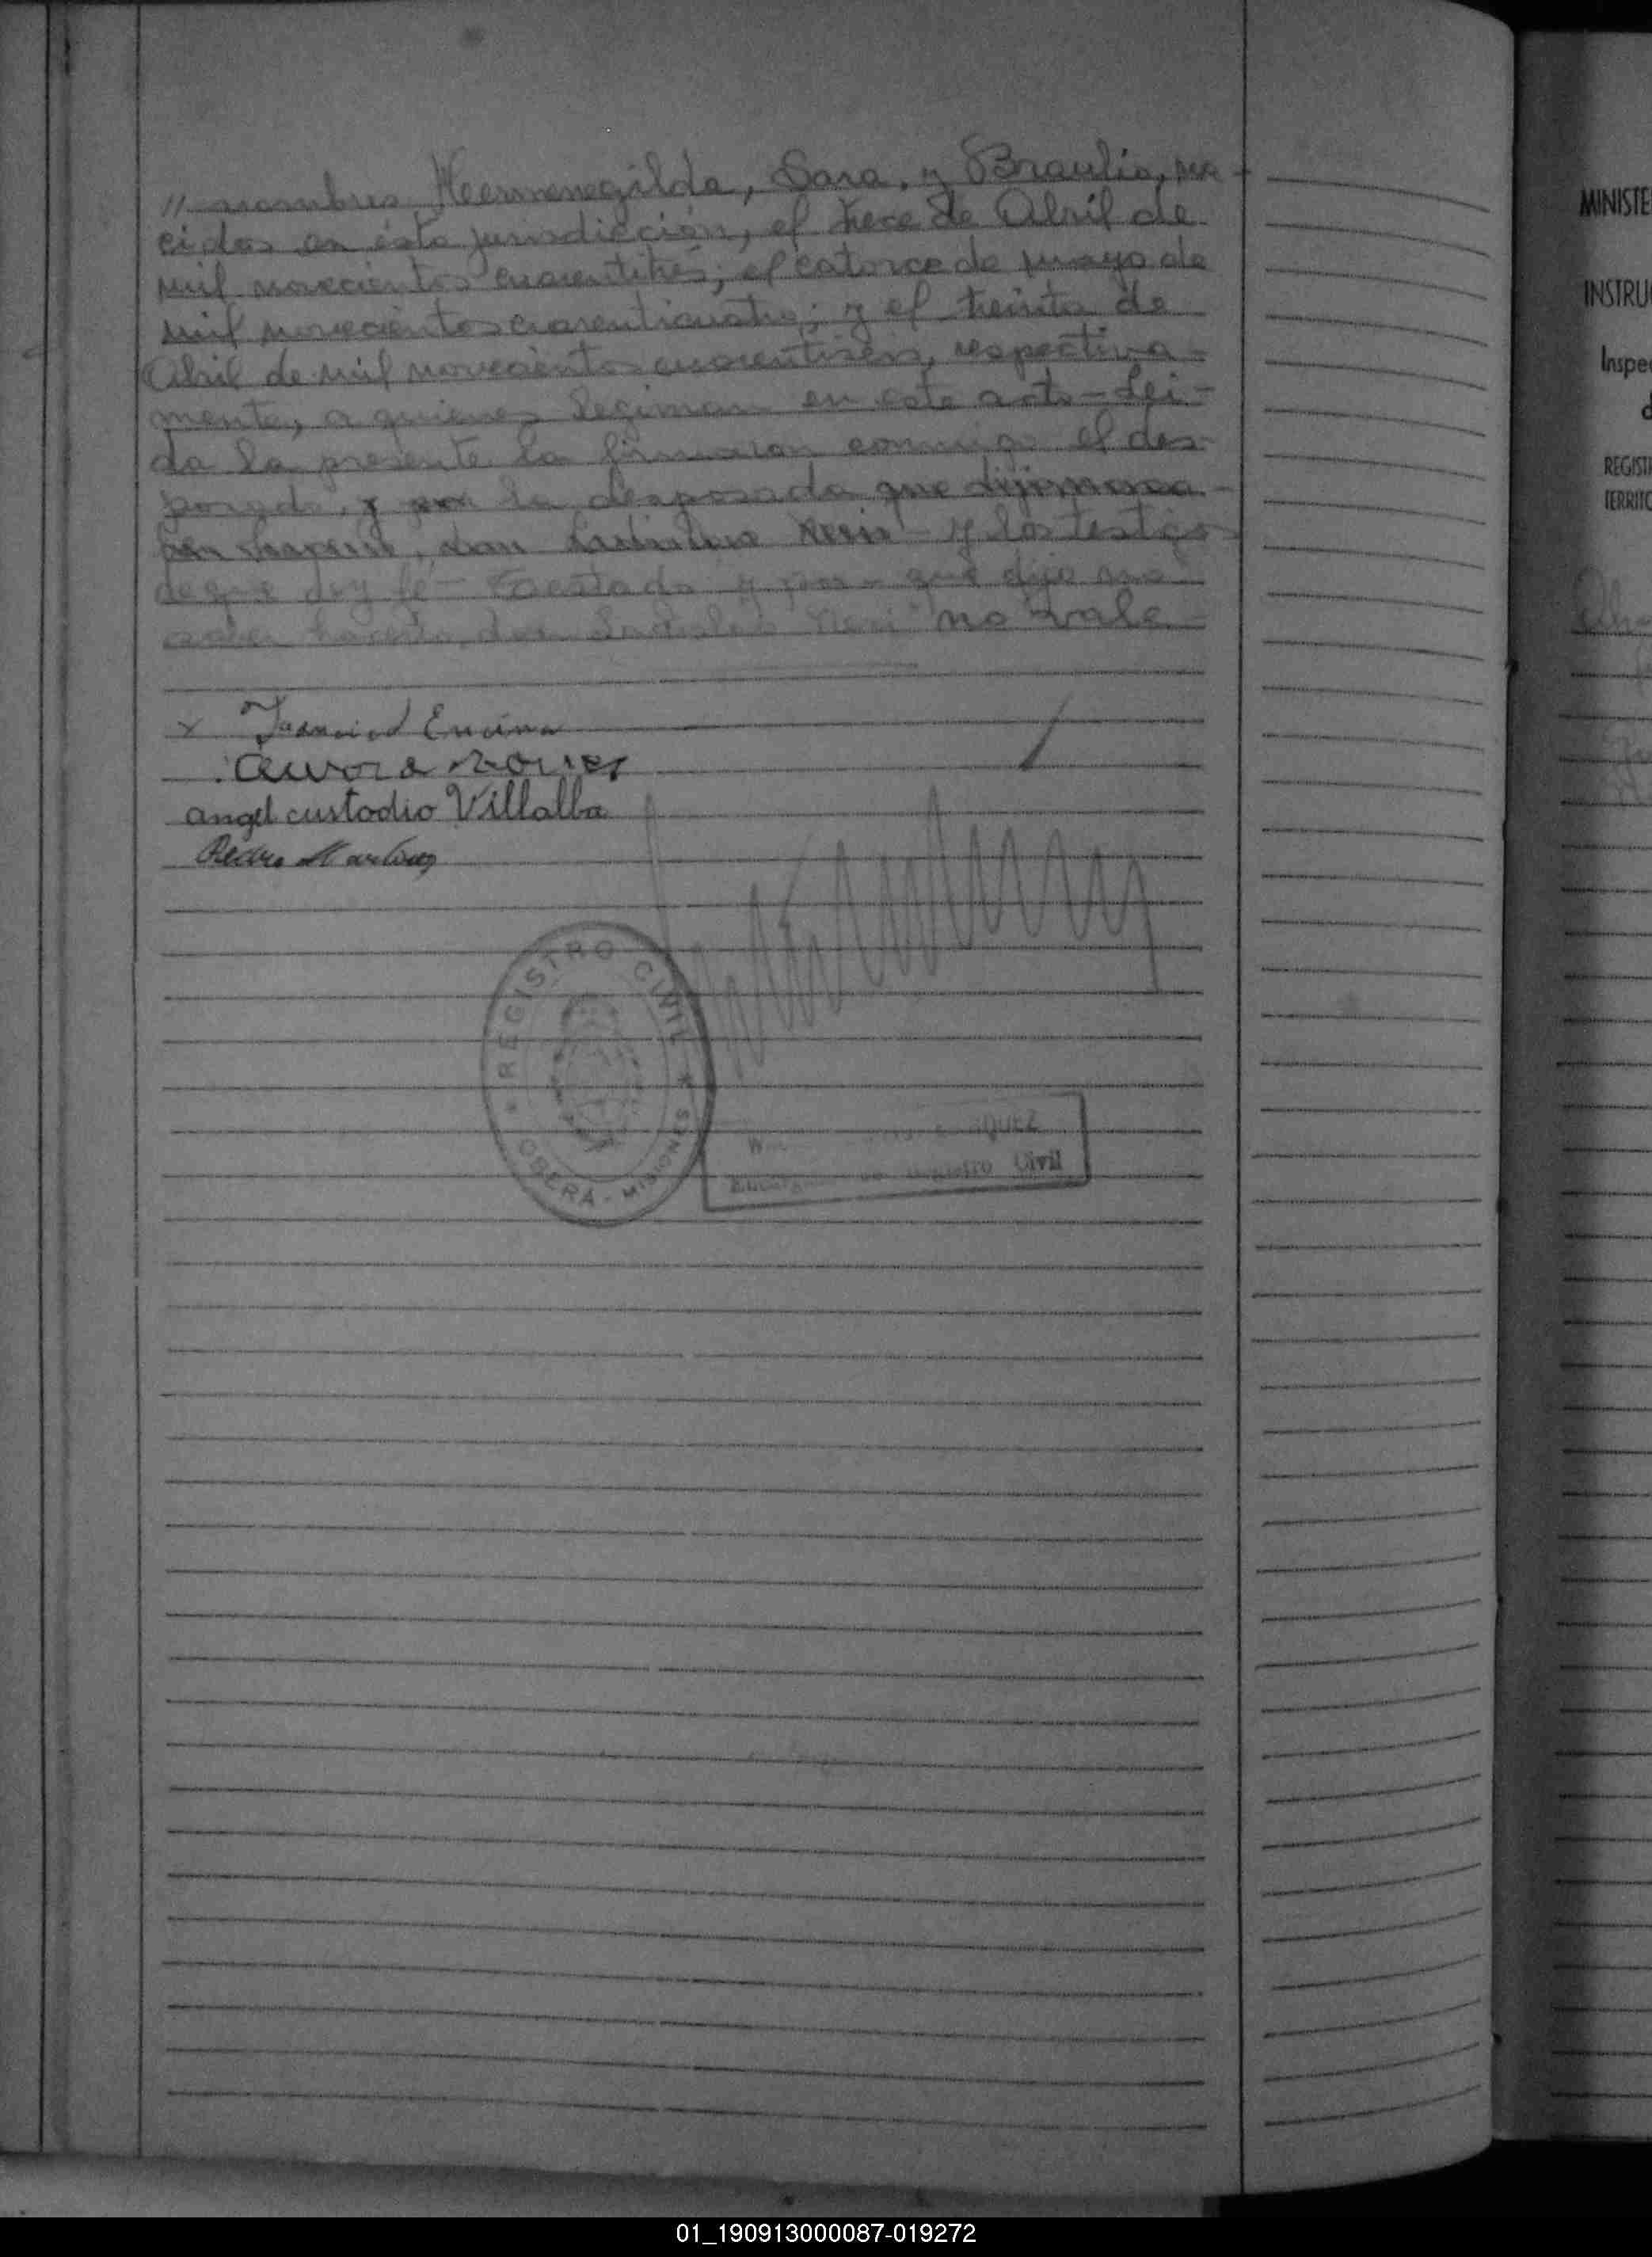 " nombres Hermenegilda, Sara, y Braulio, na-
cidos en ésta jurisdicción, el trece de Abril de
mil novecientos cuarentitrés; el catorce de mayo de
mil novecientos cuarenticuatro; y el treinta de
Abril de mil novecientos cuarentiseis, respectiva-
mente, a quienes legiman en este acto - Leí-
da la presente la firmaron conmigo el des-
posado, y por la desposada que dijo no sa-
ber hacerlo, don y los testigos
de que doy fé - Testado y por - que dijo no
saber hacerlo, don no vale -
x Encina
Aurora
angel custodio Villalba
Pedro Martinez
REGISTRO CIVIL
OBERA - MISIONES
QUEZ
Registro Civil
MINISTE
INSTRU
Inspe
d
REGIST
TERRITO
01_190913000087-019272